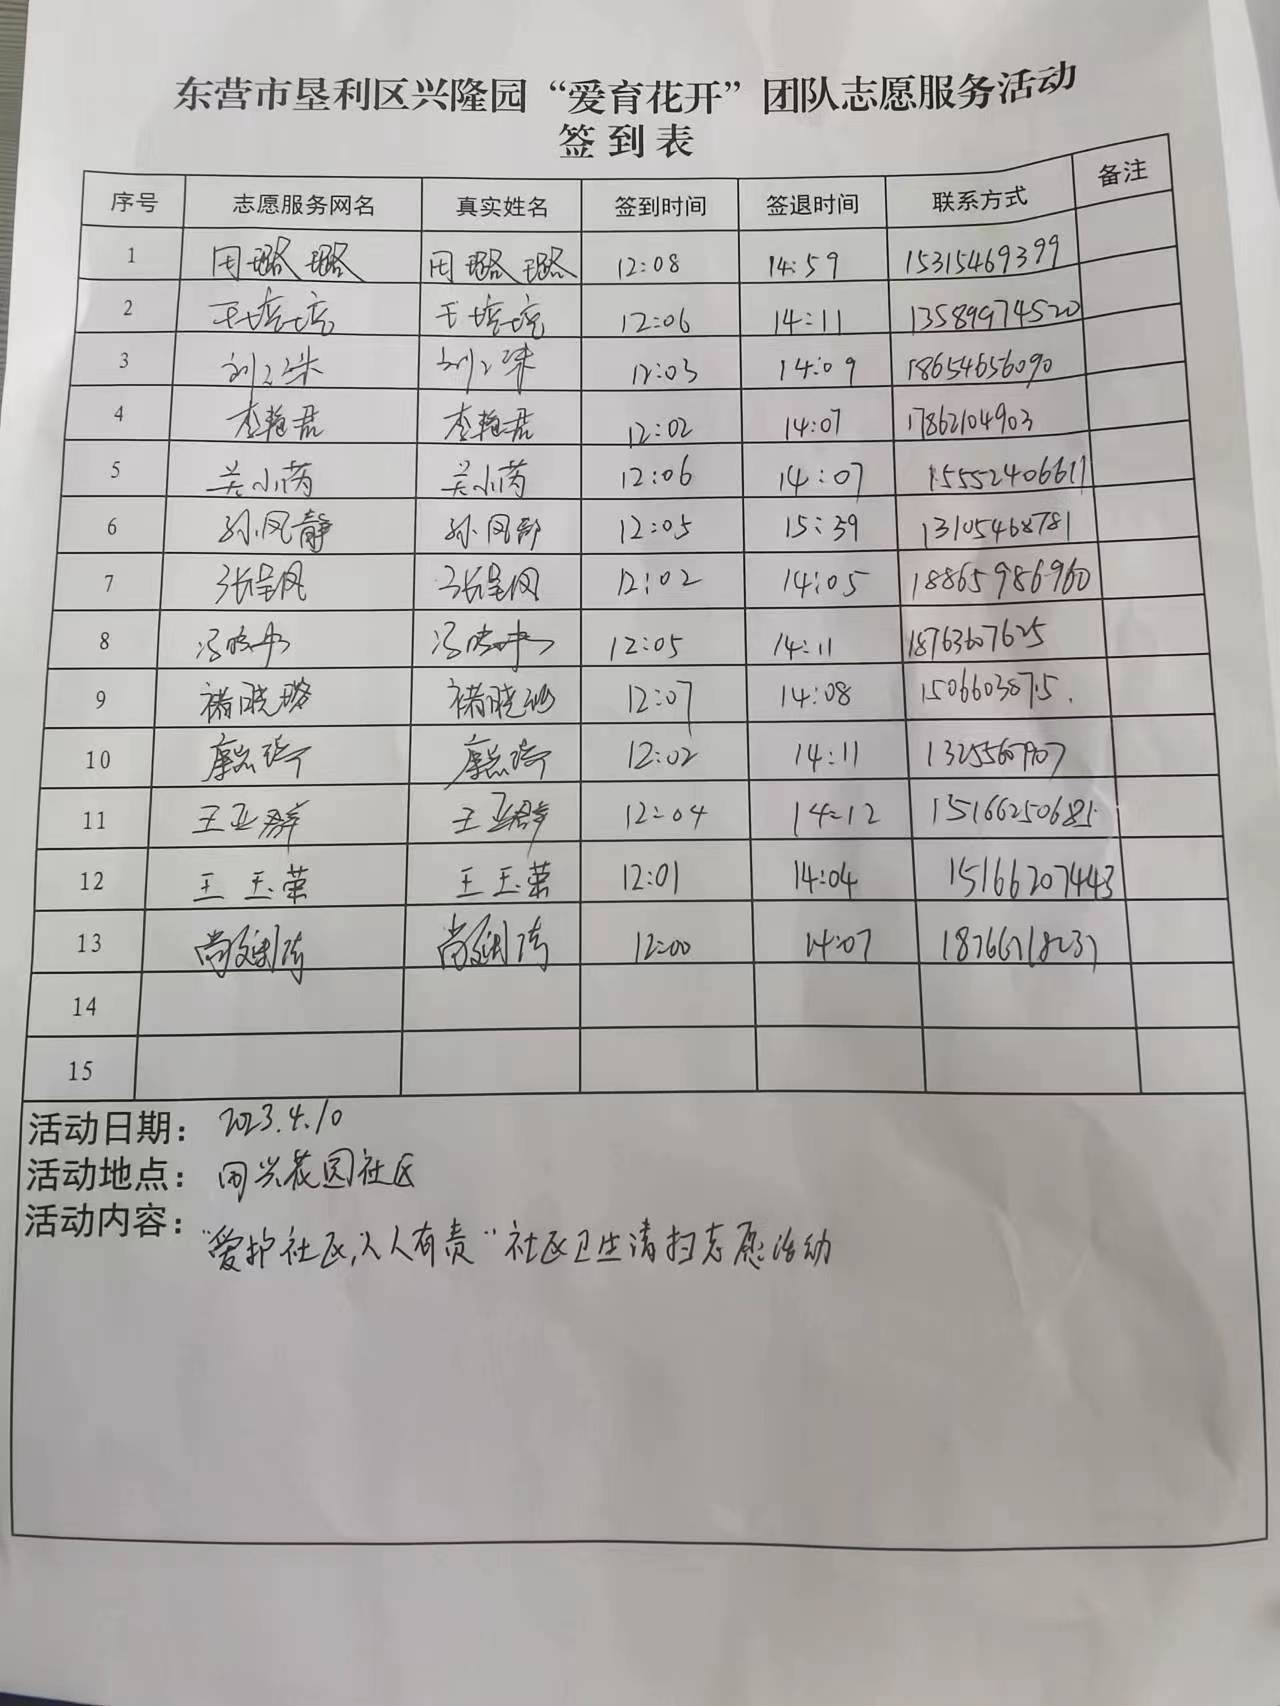 东营市垦利区兴隆园“爱育花开”团队志愿服务活动
签到表
序号 志愿服务网名 真实姓名 签到时间 签退时间 联系方式 备注
1 周璐璐 周璐璐 12:08 14:59 15315469399
2 王培培 王培培 12:06 14:11 13589974520
3 12:03 14:09 18654656090
4 李艳君 李艳君 12:02 14:07 17862104903
5 吴小芮 吴小芮 12:06 14:07 15552406617
6 孙风静 孙风静 12:05 15:39 13105468781
7 12:02 14:05 18865986960
8 12:05 14:11 18763607625
9 褚晓璐 12:07 14:08 1506603875.
10 12:02 14:11
11 王亚群 王亚群 12:04 14:12 15166250685
12 王玉荣 王玉荣 12:01 14:04 15166207443
13 12:00 14:07
14
15
活动日期: 2023.4.10
活动地点: 同兴花园社区
活动内容: “爱护社区,人人有责”社区卫生清扫志愿活动